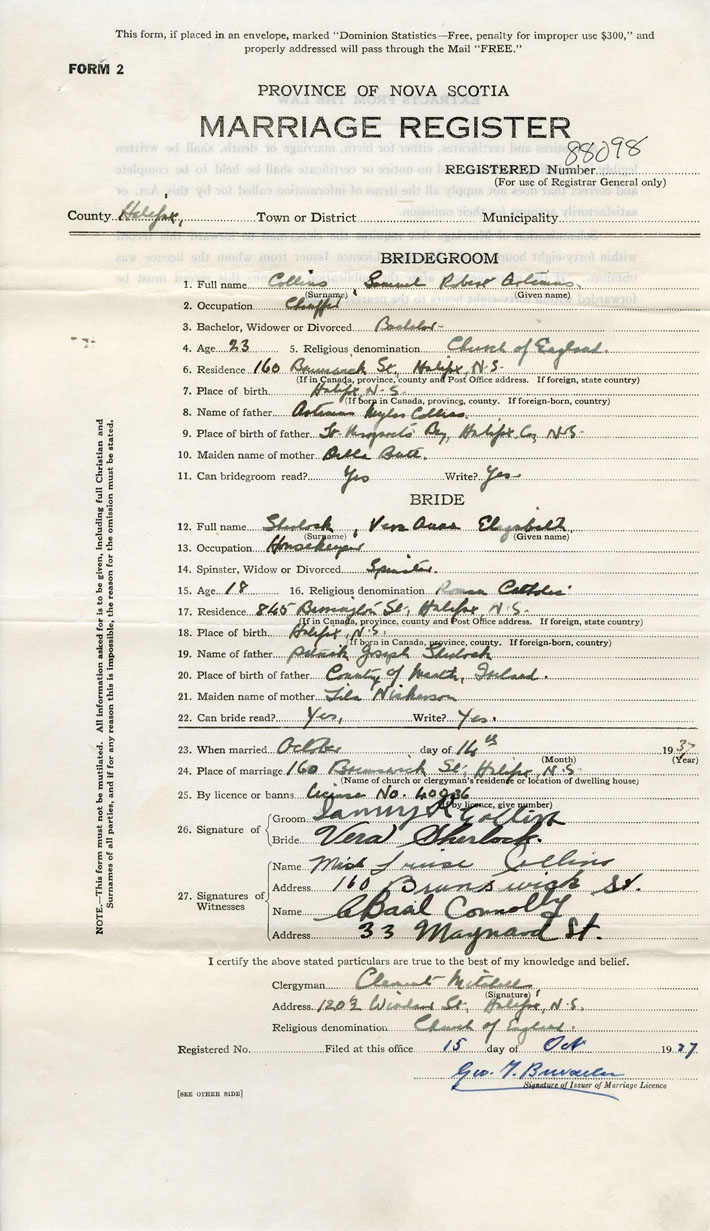 This form, if placed in an envelope, marked "Dominion Statistics—Free, penalty for improper use $300," and
properly addressed will pass through the Mail "FREE."
FORM 2
PROVINCE OF NOVA SCOTIA
MARRIAGE REGISTER
REGISTERED Number 88098
(For use of Registrar General only)
County Halifax, Town or District Municipality
BRIDEGROOM
1. Full name Collins, Samuel Robert Artimus.
(Surname) (Given name)
2. Occupation
3. Bachelor, Widower or Divorced Bachelor
4. Age 23 5. Religious denomination Church of England.
6. Residence 160 Brunswick St, Halifax, N.S.
(If in Canada, province, county and Post Office address. If foreign, state country)
7. Place of birth Halifax, N.S.
(If born in Canada, province, county. If foreign-born, country)
8. Name of father Artimus Myles Collins.
9. Place of birth of father St. Margarets Bay, Halifax Co, N.S.
10. Maiden name of mother Bella
11. Can bridegroom read? Yes Write? Yes
BRIDE
12. Full name Sherlock, Vera Anna Elizabeth
(Surname) (Given name)
13. Occupation Housekeeper
14. Spinster, Widow or Divorced Spinster.
15. Age 18 16. Religious denomination Roman Catholic
17. Residence 845 Barrington St, Halifax, N.S.
(If in Canada, province, county and Post Office address. If foreign, state country)
18. Place of birth Halifax, N.S.
(If born in Canada, province, county. If foreign-born, country)
19. Name of father Patrick Joseph Sherlock
20. Place of birth of father County of Meath, Ireland.
21. Maiden name of mother Lila Nickerson
22. Can bride read? Yes, Write? Yes.
23. When married October day of 14th 1937
(Month) (Year)
24. Place of marriage 160 Brunswick St, Halifax, N.S.
(Name of church or clergyman's residence or location of dwelling house)
25. By licence or banns License No. 40936
(If by licence, give number)
26. Signature of Groom Collins
Bride Vera Sherlock.
27. Signatures of Witnesses
Name Miss Louise Collins
Address 160 Brunswick St.
Name Basil Connolly
Address 33 Maynard St.
I certify the above stated particulars are true to the best of my knowledge and belief.
Clergyman Clement Mitchell
(Signature)
Address 120½ Windsor St, Halifax, N.S.
Religious denomination Church of England.
Registered No. Filed at this office 15 day of Oct 1937
Geo. T.
Signature of Issuer of Marriage Licence
[SEE OTHER SIDE]
NOTE.—This form must not be mutilated. All information asked for is to be given, including full Christian and
Surnames of all parties, and if for any reason this is impossible, the reason for the omission must be stated.